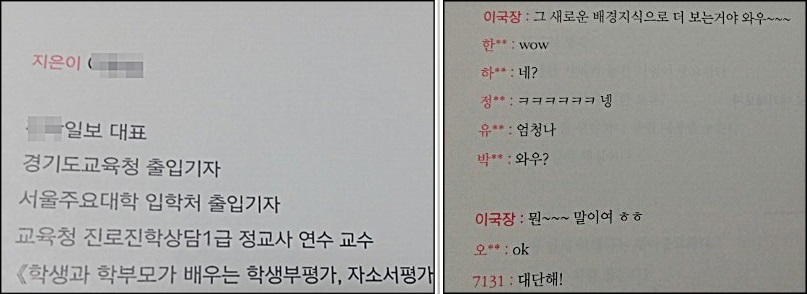 지은이
일보 대표
경기도교육청 출입기자
서울주요대학 입학처 출입기자
교육청 진로진학상담1급 정교사 연수 교수
《학생과 학부모가 배우는 학생부평가, 자소서평가
이국장 : 그 새로운 배경지식으로 더 보는거야 와우~~~
한** : wow
하** : 네?
정** : ㅋㅋㅋㅋㅋㅋ 넹
유** : 엄청나
박** : 와우?
이국장 : 뭔~~~ 말이여 ㅎㅎ
오** : ok
7131 : 대단해!